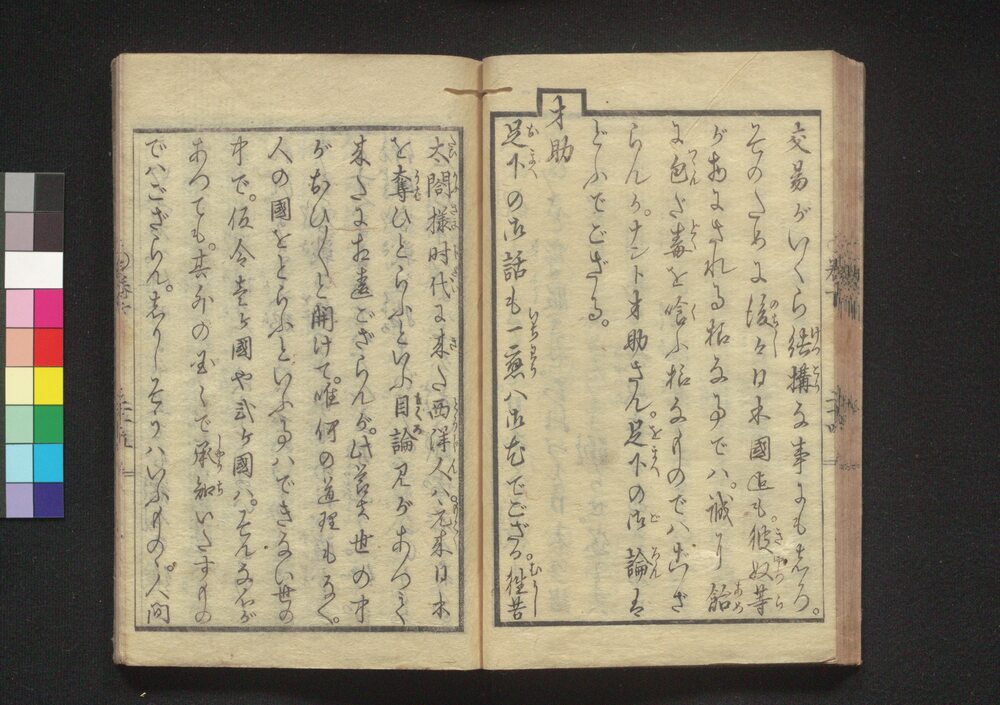 交易がいくら結構な事にもしろ。
そのために後々日本國迄も。彼奴等
がものにされる樣な事でハ。誠に飴
に包だ毒を喰ふ樣なものでハござ
らんか。ナント才助さん。足下の御論は
どふでござる。
才助
足下の御話も一應ハ御尤でござる。往昔
太閤様时代に来た西洋人ハ。元来日本
を奪ひとらふといふ目論見があつて
来たに相違ござらんが。此節ハ世の中
がおひ〳〵と開けて。唯何の道理もなく。
人の國をとらふといふ事ハできない世の
中で。仮令壱ヶ國や弐ヶ國ハ。そんな
あつても。其外の國々で承知いたすもの
でハござらん。ハいふものゝ。人間